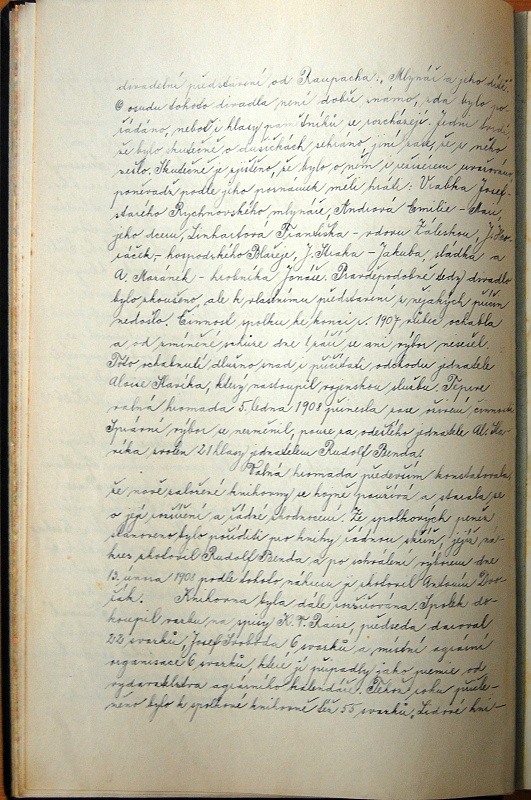 divadelní představení od Raupacha: „Mlynář a jeho dítě."
O osudu tohoto divadla není dobře známo, zda bylo po-
řádáno, neboť i hlasy pamětníků se rozcházejí. Jedni tvrdí,
že bylo skutečně o dušičkách sehráno, jiní zase, že z něho
sešlo. Skutečně je zjištěno, že bylo o něm i režisérem uvažováno,
poněvadž podle jeho poznámek měli hráti: Vrabka Josef -
starého Rychnovského mlynáře, Andrová Emilie - Mari,
jeho dceru, Linhartová Františka - vdovu Záleskou, J. Ma-
ráček - hospodského Blažeje, J. Straka - Jakuba, sládka a
A. Maránek - hrobníka Jonáše. Pravděpodobně tedy divadlo
bylo zkoušeno, ale k vlastnímu představení z nějakých příčin
nedošlo. Činnost spolku ke konci r. 1907 vůbec ochabla
a od zmíněné schůze dne září se ani výbor nesešel.
Toto ochabnutí dlužno snad i přičítati odchodu jednatele
Aloise Havíka, který nastoupil vojenskou službu. Teprve
valná hromada 5. ledna 1908 přinesla zase oživení činnosti.
Správní výbor se nezměnil, pouze za odešlého jednatele Al. Ha-
víka zvolen 21 hlasy jednatelem Rudolf Benda.
Valná hromada především konstatovala,
že nově založené knihovny se hojně používá a starala se
o její rozšíření a řádné zhodnocení. Ze spolkových peněz
stanoveno bylo pořídit pro knihy řádnou skříň, jejíž ná-
kres zhotovil Rudolf Benda a po schválení výborem dne
13. února 1908 podle tohoto nákresu ji zhotovil Antonín Dvo-
řák. Knihovna byla dále rozšiřována. Spolek za-
koupil vazbu na spisy K. V. Raise, předseda daroval
22 svazků, Josef Svoboda 6 svazků a místní agrární
organisace 6 svazků, které jí připadly jako premie od
vydavatelstva agrárního kalendáře. Téhož roku přičle-
něno bylo k spolkové knihovně též 55 svazků „Lidové kni-